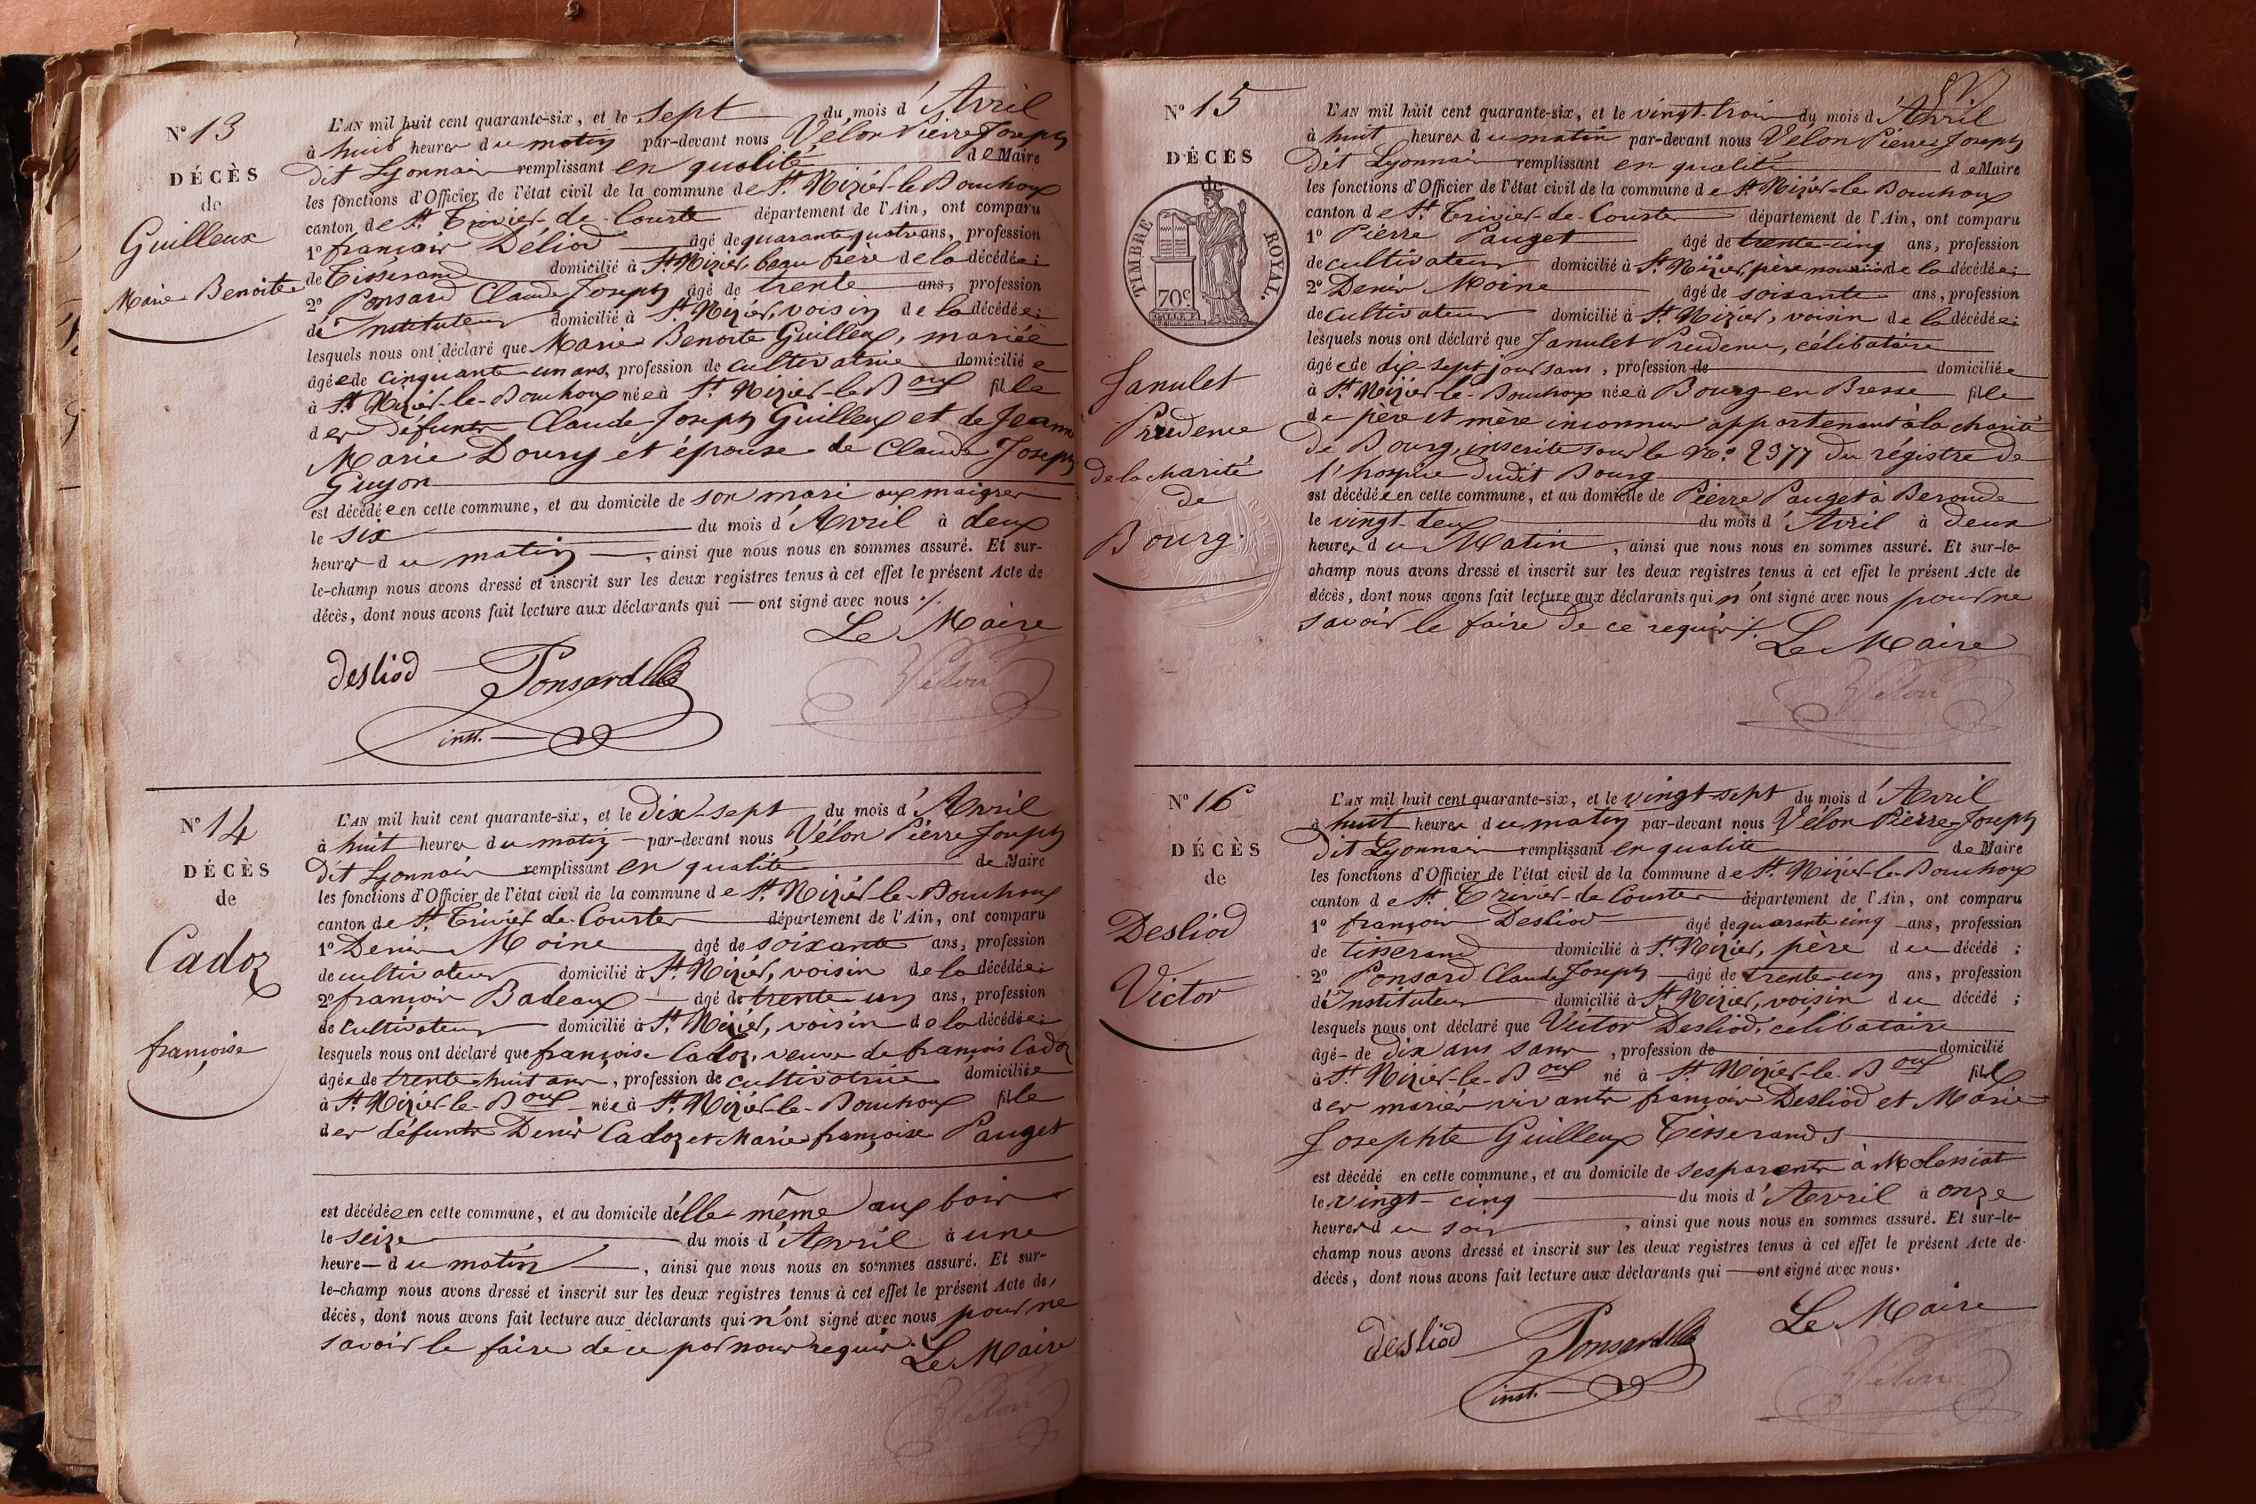 Nº 13
DÉCÈS
de
Guilleux
Marie Benoite
L'AN mil huit cent quarante-six, et le sept du mois d'Avril
à huit heures du matin par-devant nous Vélon Pierre Joseph
dit Lyonnais remplissant en qualité de Maire
les fonctions d'Officier de l'état civil de la commune de St. Nizier-le-Bouchoux
canton de St. Trivier-de-Courtes département de l'Ain, ont comparu
1º françois Déliod âgé de quarante quatre ans, profession
de Tisserand domicilié à St. Nizier, beau frère de la décédée;
2º Ponsard Claude Joseph âgé de trente ans, profession
d'Instituteur domicilié à St. Nizier, voisin de la décédée;
lesquels nous ont déclaré que Marie Benoite Guilleux, mariée
âgée de cinquante un ans, profession de cultivatrice domiciliée
à St. Nizier-le-Bouchoux née à St. Nizier-le-Boux fille
des défunts Claude-Joseph Guilleux et de Jeanne
Marie Doury et épouse de Claude Joseph
Guyon
est décédée en cette commune, et au domicile de son mari aux maigres
le six du mois d'Avril à deux
heures du matin, ainsi que nous nous en sommes assuré. Et sur-
le-champ nous avons dressé et inscrit sur les deux registres tenus à cet effet le présent Acte de
décès, dont nous avons fait lecture aux déclarants qui — ont signé avec nous ./.
Le Maire
desliod Ponsard Vélon
inst.
Nº 14
DÉCÈS
de
Cadoz
françoise
L'AN mil huit cent quarante-six, et le dix-sept du mois d'Avril
à huit heures du matin par-devant nous Vélon Pierre Joseph
dit Lyonnais remplissant en qualité de Maire
les fonctions d'Officier de l'état civil de la commune de St. Nizier-le-Bouchoux
canton de St. Trivier-de-Courtes département de l'Ain, ont comparu
1º Denis Moine âgé de soixante ans, profession
de cultivateur domicilié à St. Nizier, voisin de la décédée;
2º françois Badeaux âgé de trente-un ans, profession
de cultivateur domicilié à St. Nizier, voisin de la décédée;
lesquels nous ont déclaré que françoise Cadoz, veuve de françois Cadoz
âgée de trente-huit ans, profession de cultivatrice domiciliée
à St. Nizier-le-Boux née à St. Nizier-le-Bouchoux fille
des défunts Denis Cadoz et Marie françoise Pauget
est décédée en cette commune, et au domicile d'elle-même aux bois
le seize du mois d'Avril à une
heure — du matin, ainsi que nous nous en sommes assuré. Et sur-
le-champ nous avons dressé et inscrit sur les deux registres tenus à cet effet le présent Acte de
décès, dont nous avons fait lecture aux déclarants qui n'ont signé avec nous pour ne
savoir le faire de ce par nous requis.
Le Maire
Vélon
Nº 15
DÉCÈS
de
TIMBRE ROYAL.
70c
Janulet
Prudence
de la charité
de
Bourg.
L'AN mil huit cent quarante-six, et le vingt-trois du mois d'Avril
à huit heures du matin par-devant nous Vélon Pierre Joseph
dit Lyonnais remplissant en qualité de Maire
les fonctions d'Officier de l'état civil de la commune de St. Nizier-le-Bouchoux
canton de St. Trivier-de-Courtes département de l'Ain, ont comparu
1º Pierre Pauget âgé de trente-cinq ans, profession
de cultivateur domicilié à St. Nizier, père nouricier de la décédée;
2º Denis Moine âgé de soixante ans, profession
de cultivateur domicilié à St. Nizier, voisin de la décédée;
lesquels nous ont déclaré que Janulet Prudence, célibataire
âgée de dix-sept jours ans, profession de domiciliée
à St. Nizier-le-Bouchoux née à Bourg-en-Bresse fille
de père et mère inconnus appartenant à la charité
de Bourg, inscrite sous le No. 2377 du régistre de
l'hospice dudit Bourg
est décédée en cette commune, et au domicile de Pierre Pauget à Beronde
le vingt-deux du mois d'Avril à deux
heures du Matin, ainsi que nous nous en sommes assuré. Et sur-le-
champ nous avons dressé et inscrit sur les deux registres tenus à cet effet le présent Acte de
décès, dont nous avons fait lecture aux déclarants qui n'ont signé avec nous pour ne
savoir le faire de ce requis ./.
Le Maire
Vélon
Nº 16
DÉCÈS
de
Desliod
Victor
L'AN mil huit cent quarante-six, et le vingt-sept du mois d'Avril
à huit heures du matin par-devant nous Vélon Pierre-Joseph
dit Lyonnais remplissant en qualité de Maire
les fonctions d'Officier de l'état civil de la commune de St. Nizier-le-Bouchoux
canton de St. Trivier-de-Courtes département de l'Ain, ont comparu
1º françois Desliod âgé de quarante cinq ans, profession
de tisserand domicilié à St. Nizier, père du décédé;
2º Ponsard Claude Joseph âgé de trente-un ans, profession
d'Instituteur domicilié à St. Nizier, voisin du décédé;
lesquels nous ont déclaré que Victor Desliod, célibataire
âgé - de dix ans sans, profession de domicilié
à St. Nizier-le-Boux né à St. Nizier-le-Boux fils
des mariés vivants françois Desliod et Marie
Josephte Guilleux Tisserands
est décédé en cette commune, et au domicile de ses parents à Molessiat
le vingt-cinq du mois d'Avril à onze
heures du soir, ainsi que nous nous en sommes assuré. Et sur-le-
champ nous avons dressé et inscrit sur les deux registres tenus à cet effet le présent Acte de
décès, dont nous avons fait lecture aux déclarants qui — ont signé avec nous.
Le Maire
desliod Ponsard Vélon
inst.